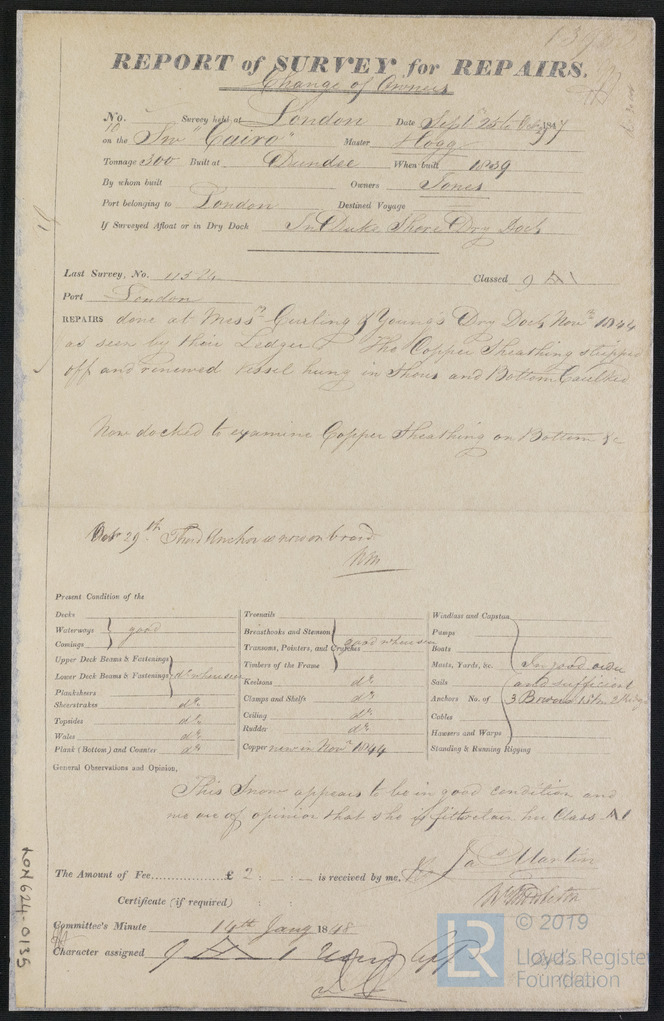 REPORT of SURVEY for REPAIRS.
Change of Owners
No. 10 Survey held at London Date Sept 25 to Oct 1847
on the Sw "Cairo" Master Hogg
Tonnage 300 Built at Dundee When built 1839
By whom built Owners Jones
Port belonging to London Destined Voyage
If Surveyed Afloat or in Dry Dock In Duke Shore Dry Dock
Last Survey, No. 11524 Classed 9 A1
Port London
REPAIRS done at Messrs Curling & Young's Dry Dock Novr 1844
as seen by their Ledger The Copper Sheathing stripped
off and renewed Vessel hung in Shores and Bottom Caulked
Now docked to examine Copper Sheathing on Bottom &c
Oct 29th Third Anchor is now on board
WM
Present Condition of the
Decks
Waterways good
Comings
Upper Deck Beams & Fastenings
Lower Deck Beams & Fastenings do where seen
Planksheers
Sheerstrakes do
Topsides do
Wales do
Plank (Bottom) and Counter do
Treenails
Breasthooks and Stemson
Transoms, Pointers, and Crutches good where seen
Timbers of the Frame
Keelsons do
Clamps and Shelfs do
Ceiling do
Rudder do
Copper new in Novr 1844
Windlass and Capstan
Pumps
Boats
Masts, Yards, &c. In good order
Sails and sufficient
Anchors No. of 3 Bowers 1 Stm 2 Kedges
Cables
Hawsers and Warps
Standing & Running Rigging
General Observations and Opinion,
This Snow appears to be in good condition and
we are of opinion that she is fit to retain her Class A1
The Amount of Fee............... £ 2 : - : - is received by me,
Jas Martin
Certificate (if required) :
Committee's Minute 14th Jany 1848
Character assigned 9 A 1
LON624-0135
© 2019
LR
Lloyd's Register
Foundation